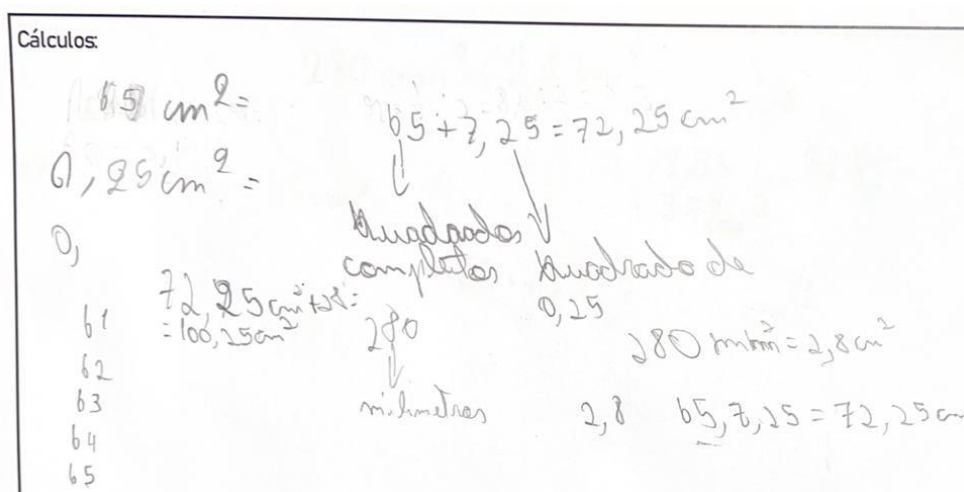 Cálculos:
65 cm²=
65+7,25=72,25cm²
0,25cm²=
0,
Quadrados
completos
Quadrado de
0,25
72,25cm²+28=
=100,25cm²
280
milimetros
280 mm²=2,8cm²
2,8
65,7,25=72,25cm
61
62
63
64
65